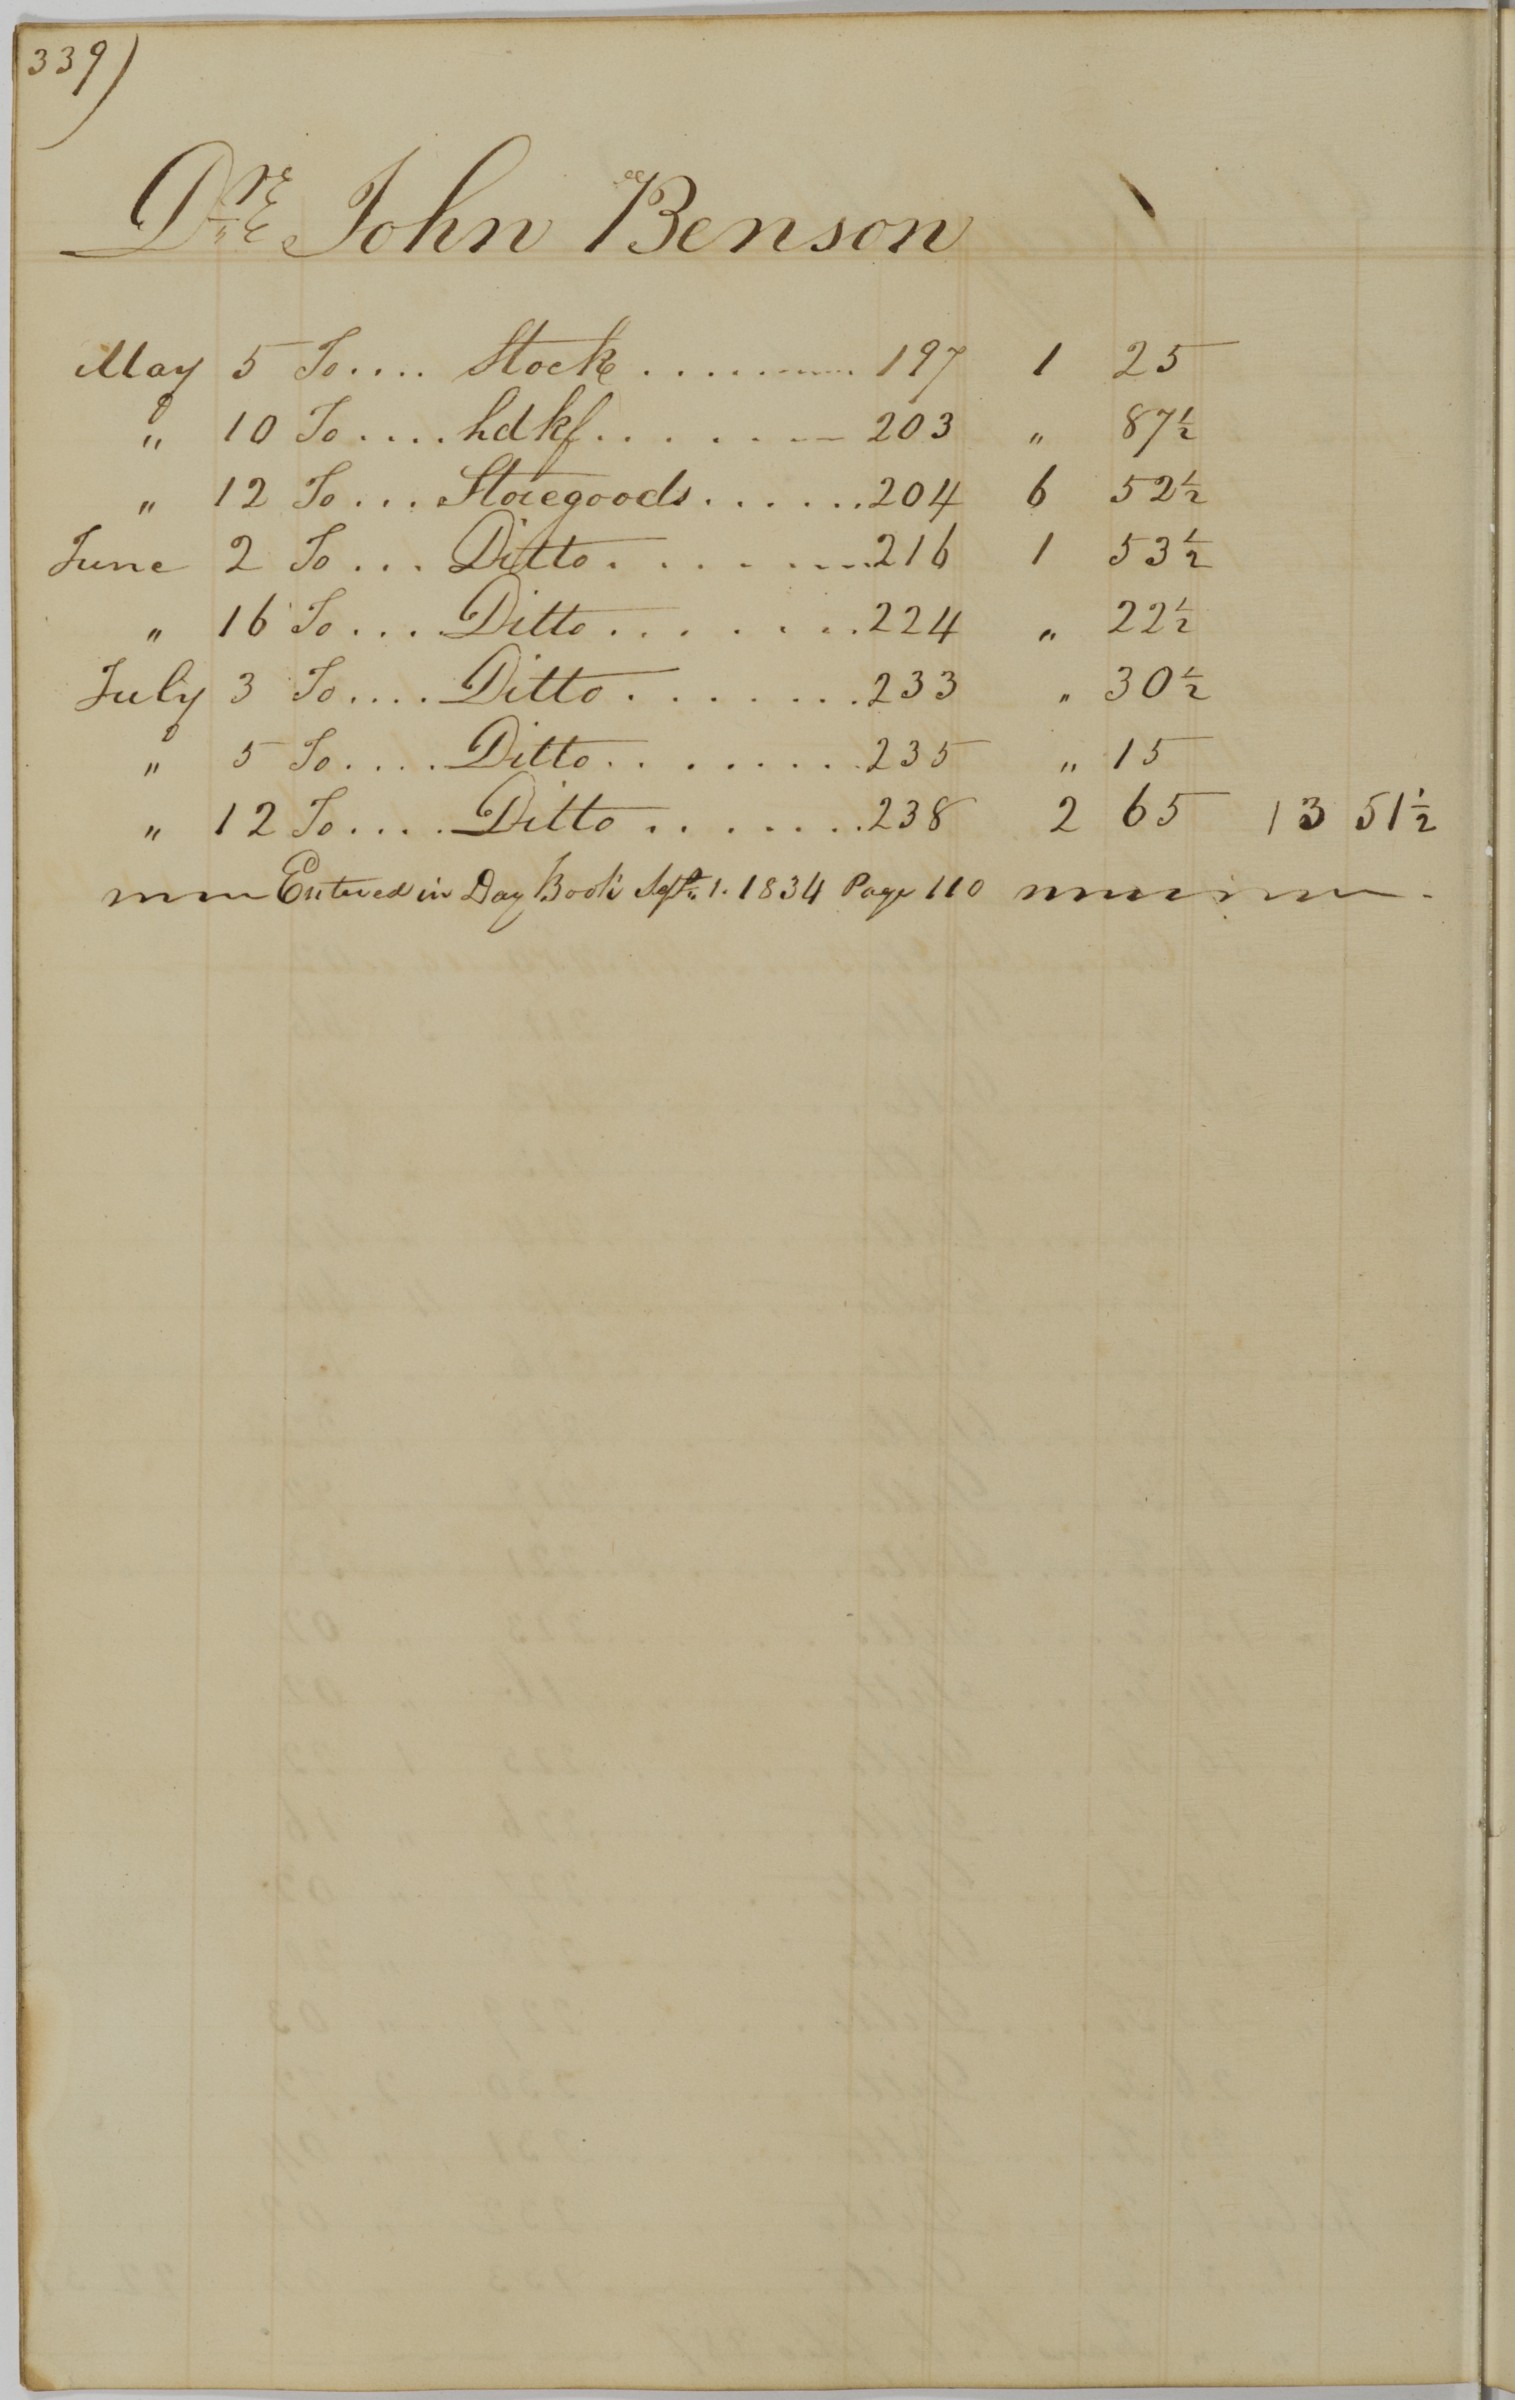 339)
Dr John Benson
May 5 To.... Stock ........ 197 1 25
" 10 To.... hdkf........ 203 " 87½
" 12 To... Storegoods...... 204 6 52½
June 2 To... Ditto........ 216 1 53½
" 16 To... Ditto........ 224 " 22½
July 3 To.... Ditto....... 233 " 30½
" 5 To.... Ditto........ 235 " 15
" 12 To.... Ditto....... 238 2 65 13 51½
Entered in Day Book Sept. 1. 1834 Page 110